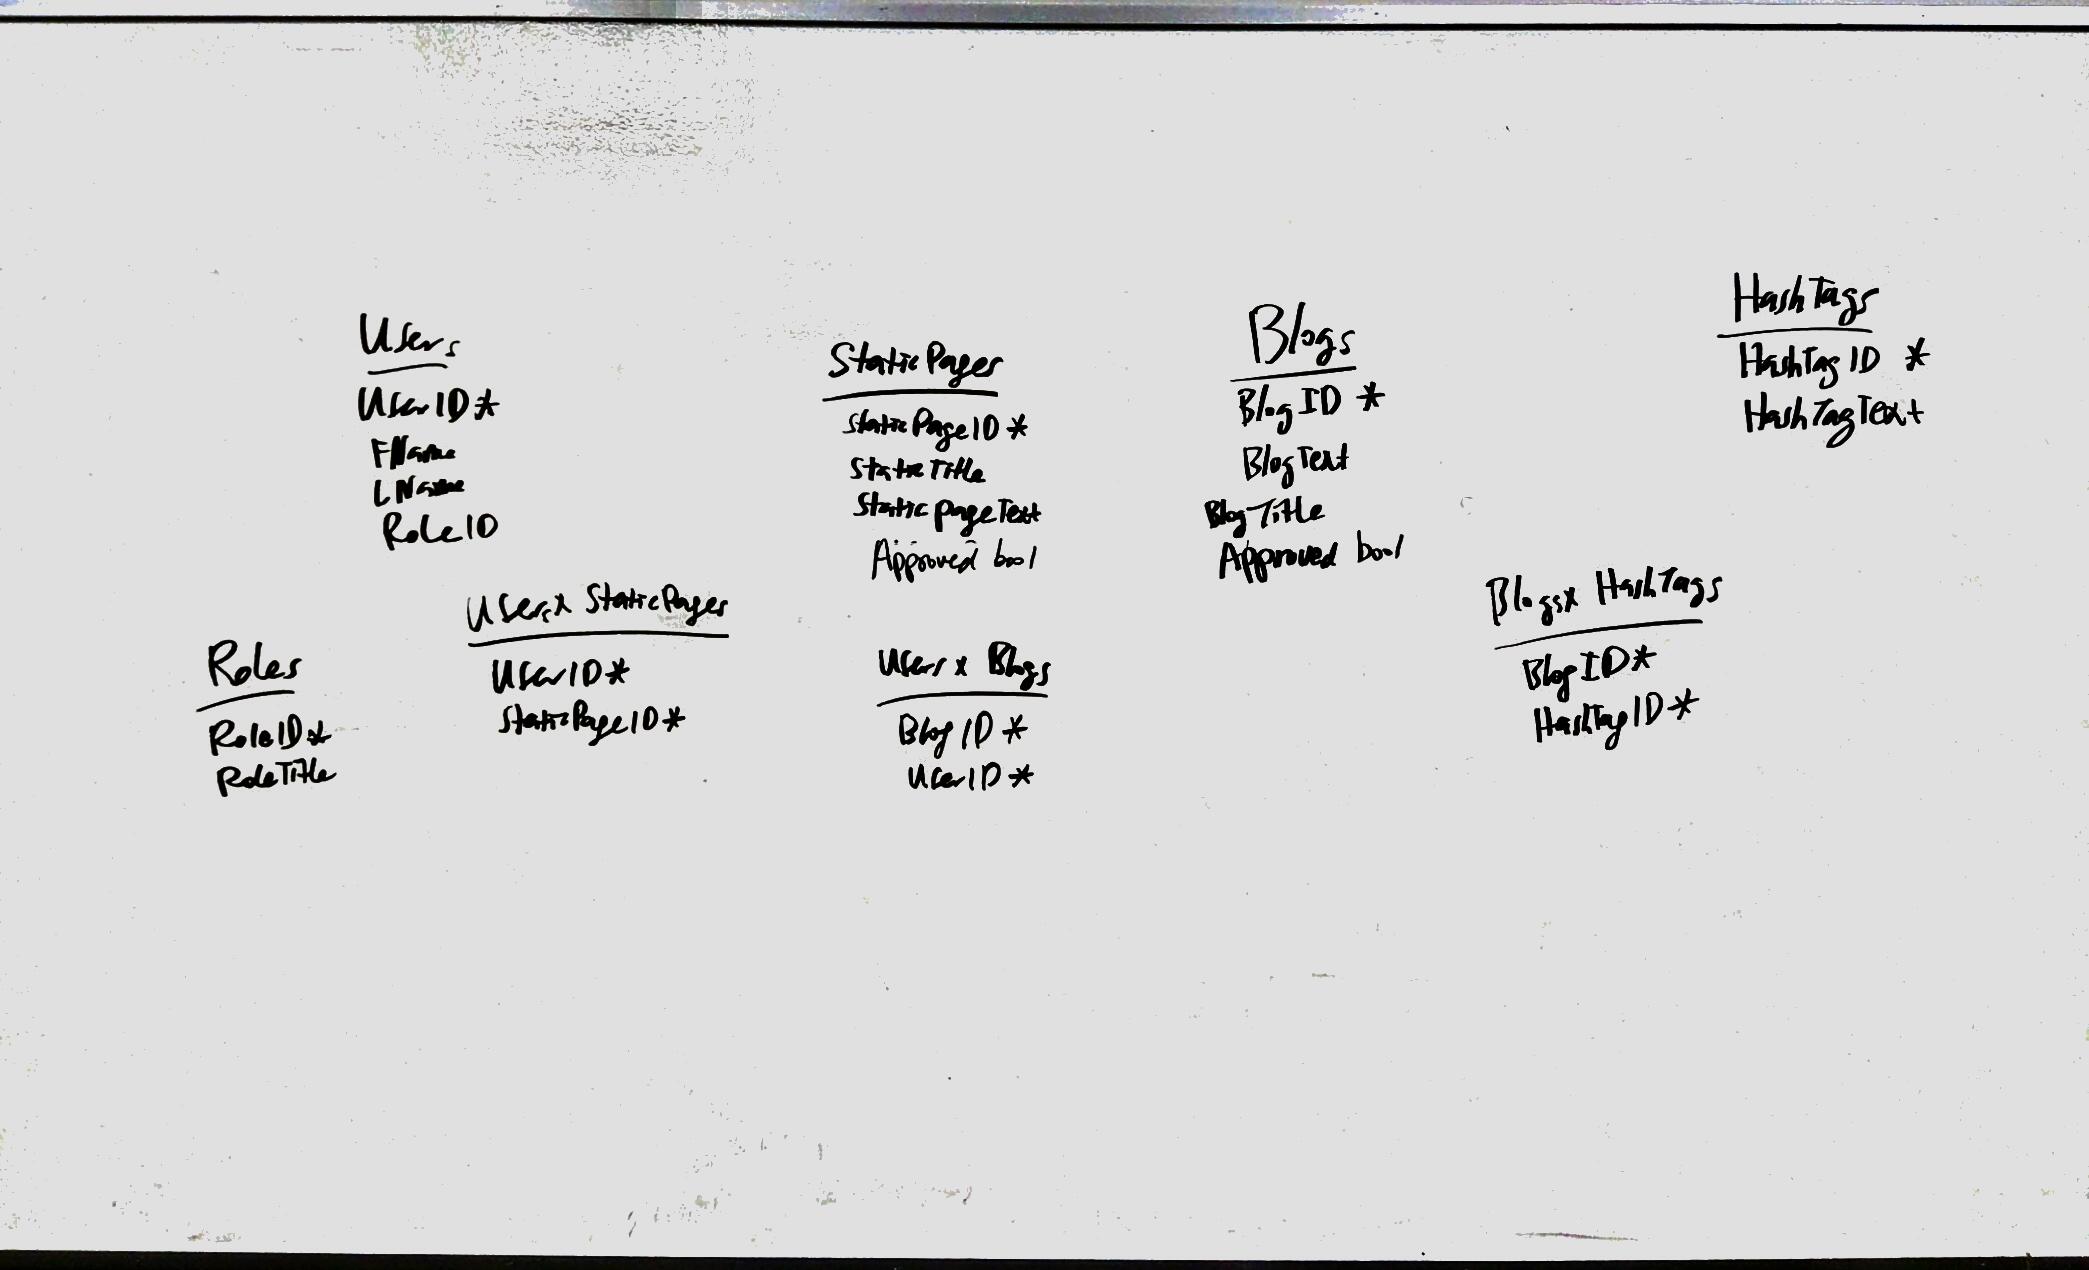 Users
UserID*
FName
LName
RoleID
StaticPages
StaticPageID*
StaticTitle
StaticpageText
Approved bool
Blogs
BlogID *
BlogText
BlogTitle
Approved bool
HashTags
HashTagID *
HashTagText
Roles
RoleID*
RoleTitle
Usersx StaticPages
UserID*
StaticPageID*
Users x Blogs
BlogID *
UserID*
Blogsx HashTags
BlogID*
HashTagID*